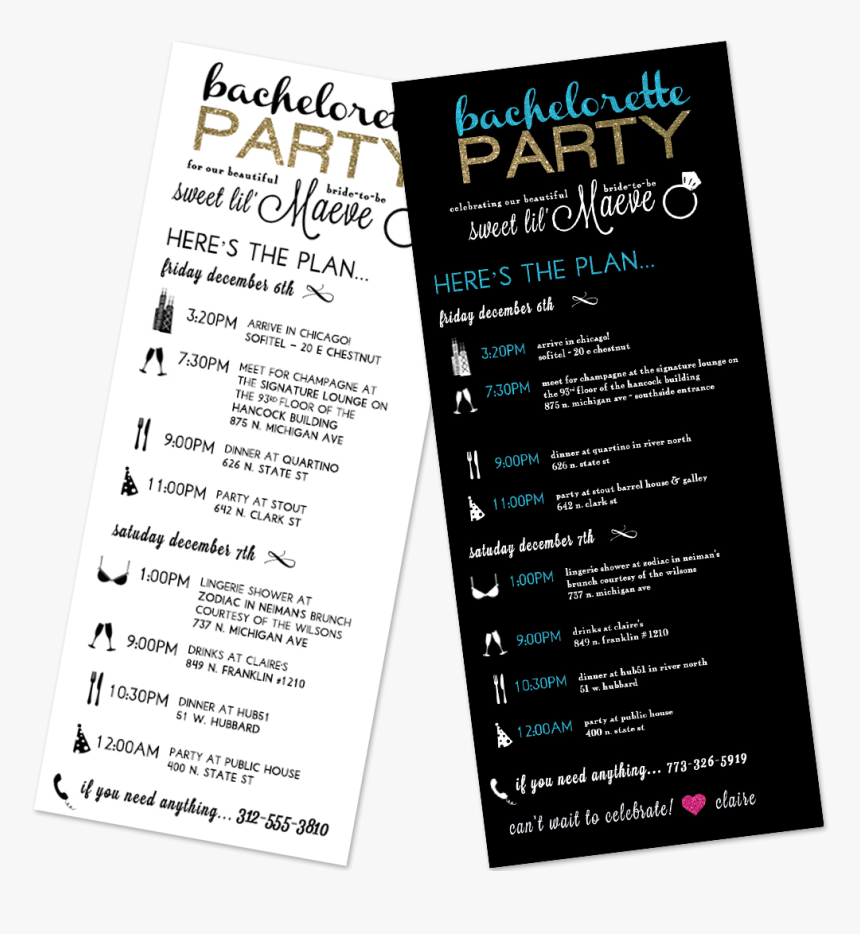 bacheloret
PARTY
for our beautiful
bride-to-be
sweet lil' Maeve
HERE'S THE PLAN...
friday december 6th
3:20PM ARRIVE IN CHICAGO!
SOFITEL – 20 E CHESTNUT
7:30PM MEET FOR CHAMPAGNE AT
THE SIGNATURE LOUNGE ON
THE 93RD FLOOR OF THE
HANCOCK BUILDING
875 N. MICHIGAN AVE
9:00PM DINNER AT QUARTINO
626 N. STATE ST
11:00PM PARTY AT STOUT
642 N. CLARK ST
satuday december 7th
1:00PM LINGERIE SHOWER AT
ZODIAC IN NEIMANS BRUNCH
COURTESY OF THE WILSONS
737 N. MICHIGAN AVE
9:00PM DRINKS AT CLAIRE'S
849 N. FRANKLIN #1210
10:30PM DINNER AT HUB51
51 W. HUBBARD
12:00AM PARTY AT PUBLIC HOUSE
400 N. STATE ST
if you need anything... 312-555-3810
bachelorette
PARTY
celebrating our beautiful bride-to-be
sweet lil' Maeve
HERE'S THE PLAN...
friday december 6th
3:20PM arrive in chicago!
sofitel - 20 e chestnut
7:30PM meet for champagne at the signature lounge on
the 93rd floor of the hancock building
875 n. michigan ave - southside entrance
9:00PM dinner at quartino in river north
626 n. state st
11:00PM party at stout barrel house & galley
642 n. clark st
satuday december 7th
1:00PM lingerie shower at zodiac in neiman's
brunch courtesy of the wilsons
737 n. michigan ave
9:00PM drinks at claire's
849 n. franklin #1210
10:30PM dinner at hub51 in river north
51 w. hubbard
12:00AM party at public house
400 n. state st
if you need anything... 773-326-5919
can't wait to celebrate! claire